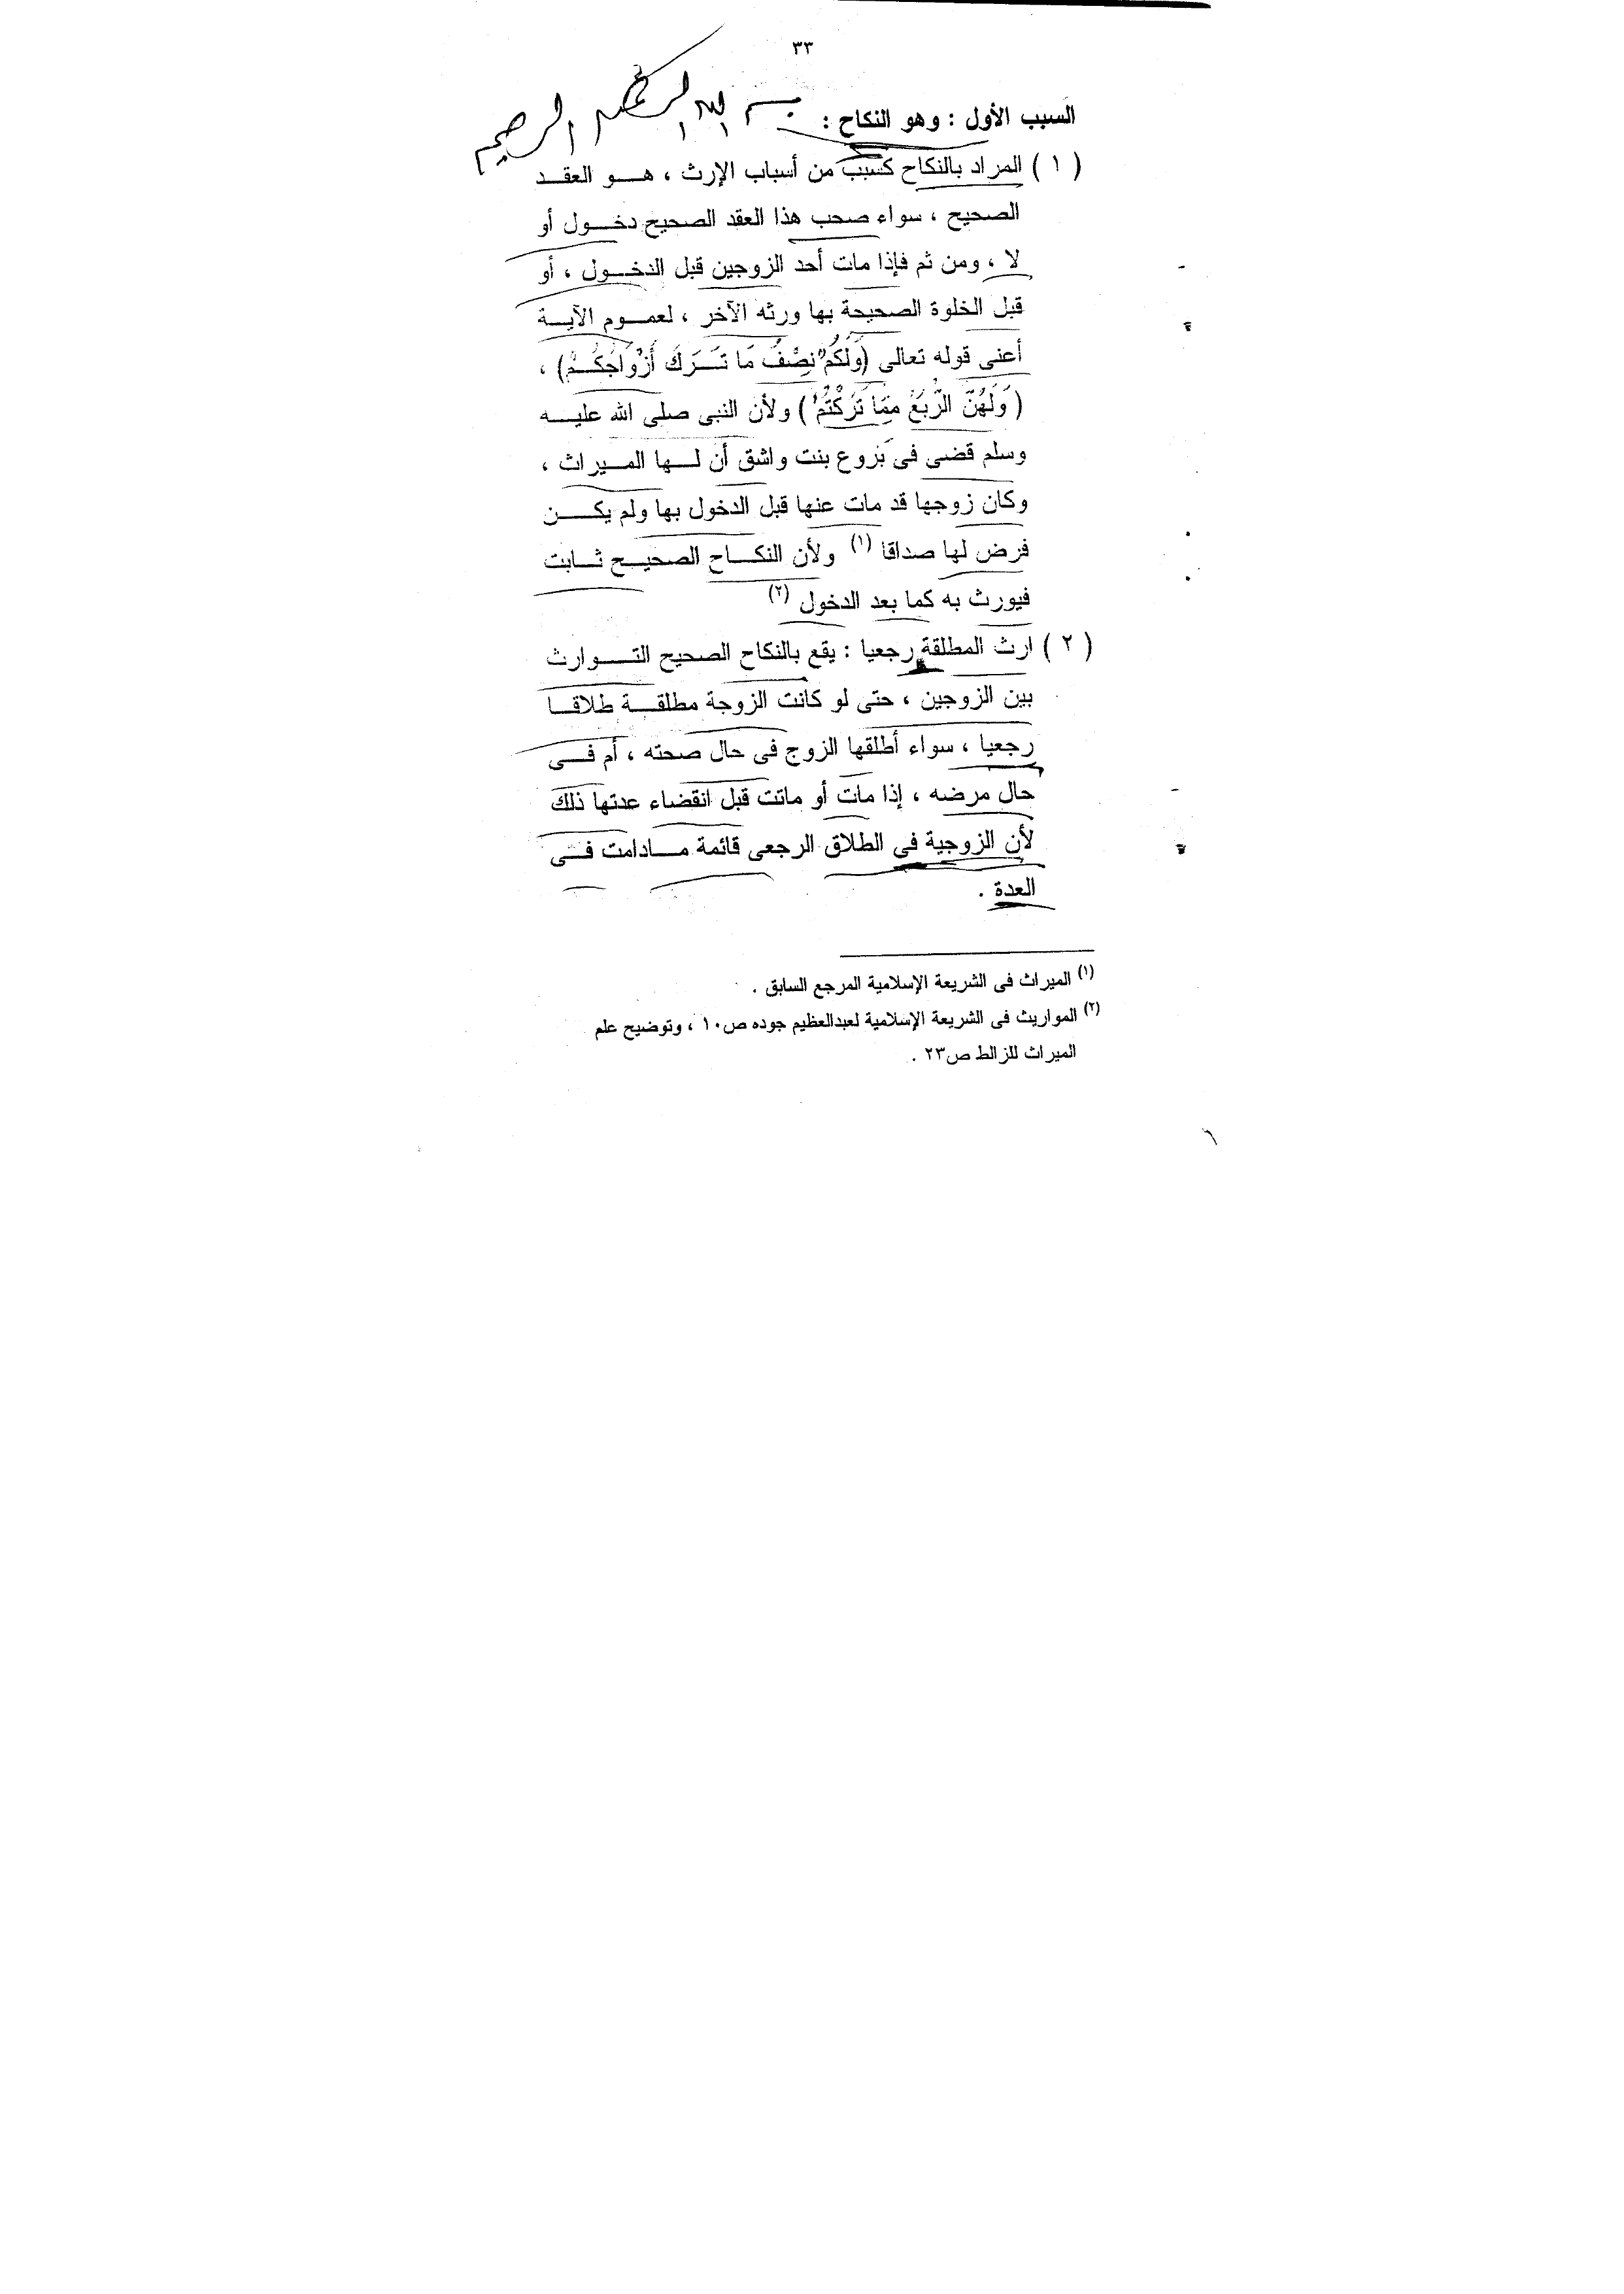 ٣٣
بسم الله الرحمن الرحيم
السبب الأول : وهو النكاح :
( ١ ) المراد بالنكاح كسبب من أسباب الإرث ، هو العقد
الصحيح ، سواء صحب هذا العقد الصحيح دخول أو
لا ، ومن ثم فإذا مات أحد الزوجين قبل الدخول ، أو
قبل الخلوة الصحيحة بها ورثه الآخر ، لعموم الآية
أعنى قوله تعالى (وَلَكُمْ نِصْفُ مَا تَرَكَ أَزْوَاجُكُمْ) ،
( وَلَهُنَّ الرُّبُعُ مِمَّا تَرَكْتُمْ ) ولأن النبى صلى الله عليه
وسلم قضى فى بَروع بنت واشق أن لها الميراث ،
وكان زوجها قد مات عنها قبل الدخول بها ولم يكن
فرض لها صداقا (١) ولأن النكاح الصحيح ثابت
فيورث به كما بعد الدخول (٢)
( ٢ ) ارث المطلقة رجعيا : يقع بالنكاح الصحيح التوارث
بين الزوجين ، حتى لو كانت الزوجة مطلقة طلاقا
رجعيا ، سواء أطلقها الزوج فى حال صحته ، أم فى
حال مرضه ، إذا مات أو ماتت قبل انقضاء عدتها ذلك
لأن الزوجية فى الطلاق الرجعى قائمة مادامت فى
العدة .
(١) الميراث فى الشريعة الإسلامية المرجع السابق .
(٢) المواريث فى الشريعة الإسلامية لعبدالعظيم جوده ص١٠ ، وتوضيح علم
الميراث للزالط ص٢٣ .